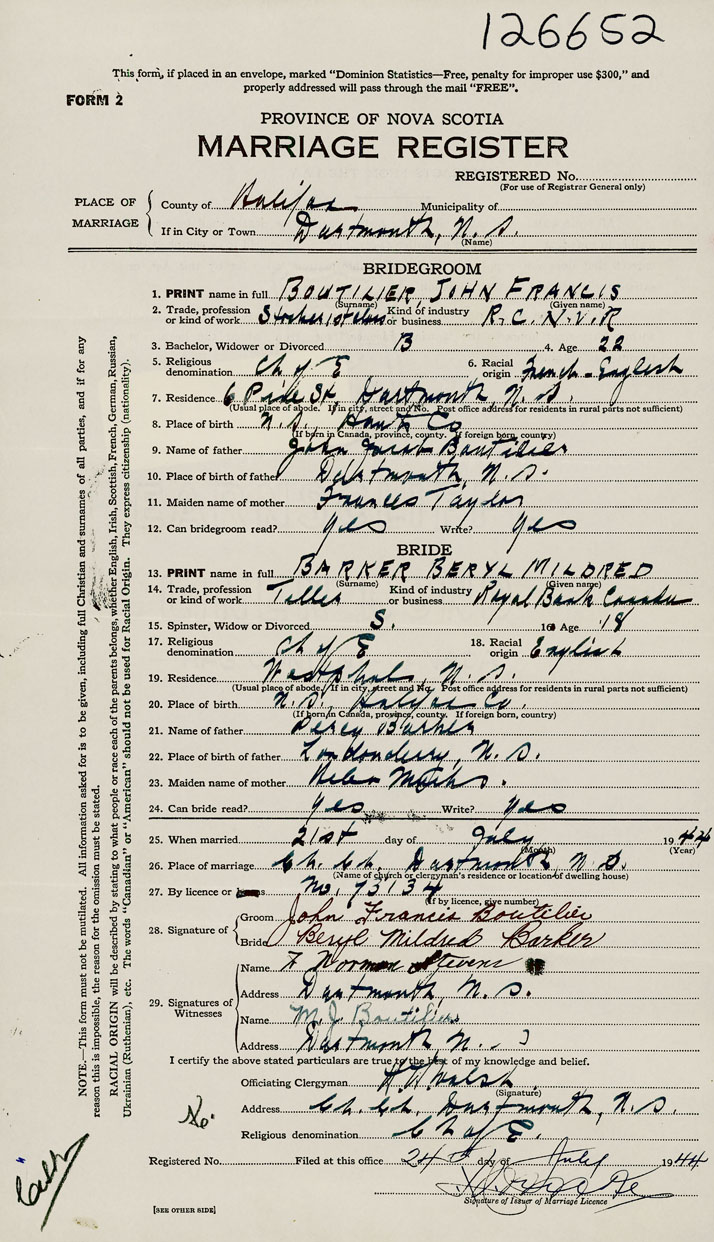 126652
This form, if placed in an envelope, marked "Dominion Statistics—Free, penalty for improper use $300," and
properly addressed will pass through the mail "FREE".
FORM 2
PROVINCE OF NOVA SCOTIA
MARRIAGE REGISTER
REGISTERED No.
(For use of Registrar General only)
PLACE OF MARRIAGE
County of Halifax Municipality of
If in City or Town Dartmouth, N. S.
(Name)
BRIDEGROOM
1. PRINT name in full BOUTILIER, JOHN FRANCIS
(Surname) (Given name)
2. Trade, profession or kind of work Stoker Kind of industry or business R. C. N. V. R
3. Bachelor, Widower or Divorced B 4. Age 22
5. Religious denomination Ch of E 6. Racial origin French-English
7. Residence 6 Pine St, Dartmouth, N. S.
(Usual place of abode. If in city, street and No. Post office address for residents in rural parts not sufficient)
8. Place of birth N. S. Hants Co
(If born in Canada, province, county. If foreign born, country)
9. Name of father John Jacob Boutilier
10. Place of birth of father Dartmouth, N. S.
11. Maiden name of mother Frances Taylor
12. Can bridegroom read? Yes Write? Yes
BRIDE
13. PRINT name in full BARKER BERYL MILDRED
(Surname) (Given name)
14. Trade, profession or kind of work Teller Kind of industry or business Royal Bank Canada
15. Spinster, Widow or Divorced S. 16 Age 18
17. Religious denomination Ch of E 18. Racial origin English
19. Residence Westphal, N. S.
(Usual place of abode. If in city, street and No. Post office address for residents in rural parts not sufficient)
20. Place of birth N. S. Halifax Co.
(If born in Canada, province, county. If foreign born, country)
21. Name of father Percy Barker
22. Place of birth of father Londonderry, N. S.
23. Maiden name of mother
24. Can bride read? Yes Write? Yes
25. When married 21st day of July 1944
(Month) (Year)
26. Place of marriage Ch. Ch. Dartmouth, N. S.
(Name of church or clergyman's residence or location of dwelling house)
27. By licence or No. 73134
(If by licence, give number)
28. Signature of
Groom John Francis Boutilier
Bride Beryl Mildred Barker
29. Signatures of Witnesses
Name F Norman Stevens
Address Dartmouth, N. S.
Name M. J. Boutilier
Address Dartmouth N.
I certify the above stated particulars are true to the best of my knowledge and belief.
Officiating Clergyman Walsh
(Signature)
Address Ch. Ch. Dartmouth, N. S.
Religious denomination Ch of E.
Registered No. Filed at this office 24th day of July 1944
Signature of Issuer of Marriage Licence
[SEE OTHER SIDE]
NOTE.—This form must not be mutilated. All information asked for is to be given, including full Christian and surnames of all parties, and if for any
reason this is impossible, the reason for the omission must be stated.
RACIAL ORIGIN will be described by stating to what people or race each of the parents belongs, whether English, Irish, Scottish, French, German, Russian,
Ukrainian (Ruthenian), etc. The words "Canadian" or "American" should not be used for Racial Origin. They express citizenship (nationality).